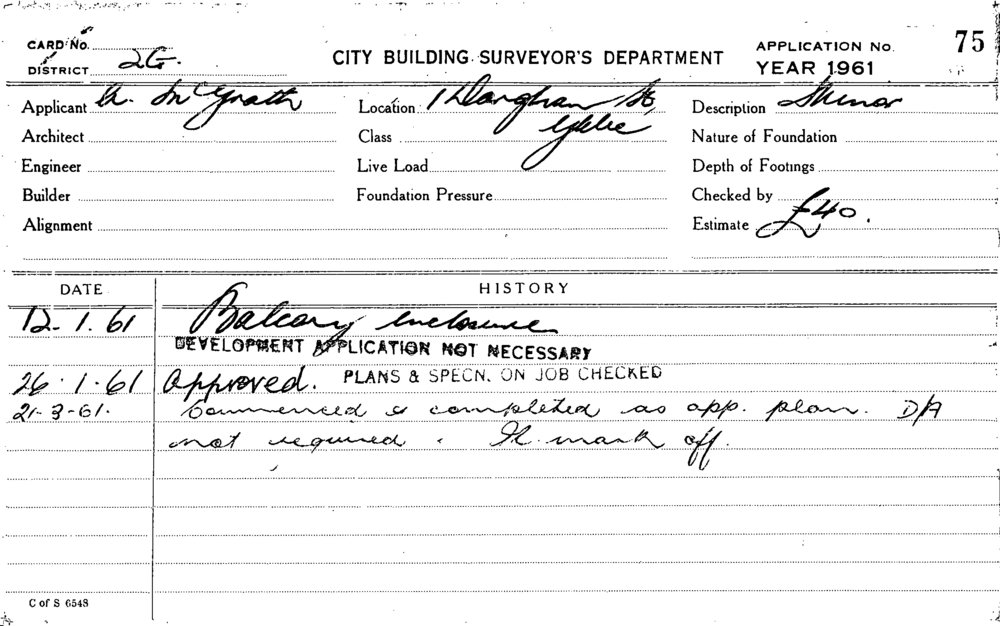 CARD No.
CITY BUILDING SURVEYOR'S DEPARTMENT
APPLICATION No. 75
DISTRICT 2G.
YEAR 1961
Applicant McGrath Location 1 Darghan St, Description Minor
Architect Class Glebe Nature of Foundation
Engineer Live Load Depth of Footings
Builder Foundation Pressure Checked by
Alignment Estimate £40.
DATE HISTORY
12-1.61 Balcony enclosure
DEVELOPMENT APPLICATION NOT NECESSARY
26.1.61 Approved. PLANS & SPECN. ON JOB CHECKED
21-3-61. Commenced & completed as app. plan. D/A
not required. mark off.
C of S 6548